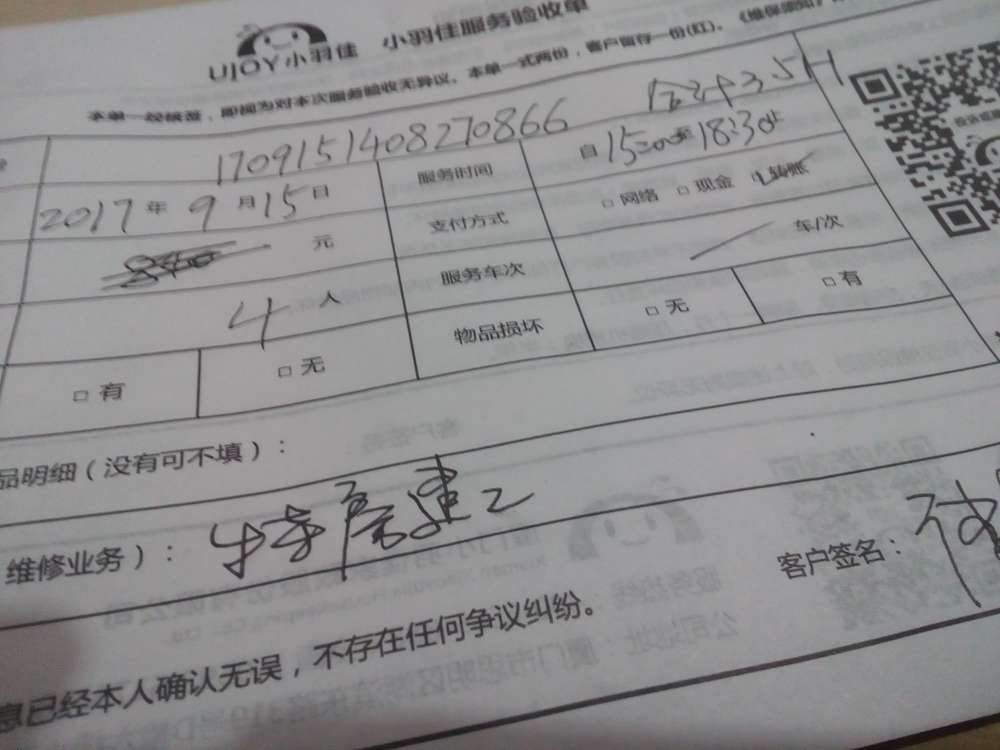 UJOY小羽佳 小羽佳服务验收单
本单一经接签，即视为对本次服务验收无异议。本单一式两份，客户留存一份(红)。
170915140827 0866 合计3.5H
2017年9月15日 服务时间 自15:00至18:30止
840元 支付方式 □网络 □现金 转账
4人 服务车次 车/次
□有 □无 物品损坏 □无 □有
品明细（没有可不填）：
维修业务）：
客户签名：
息已经本人确认无误，不存在任何争议纠纷。